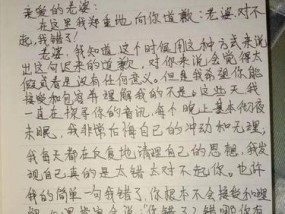 亲爱的老婆：
在这里我郑重地向你道歉：老婆对不
起，我错了！
老婆，我知道这个时候用这种方式来说
出这句迟来的道歉，对你来说会觉得太
假或者是没有任何意义，但是我希望你能
接受和包容并理解我的不是。这些天我
一直在探寻你的音讯，每个晚上基本彻夜
未眠，我非常后悔自己的冲动和无理，
我每天都在反复地清理自己的思想，我发
现自己真的是太错太对不起你。也许
我的简单一句我错了，你根本不会接受和理